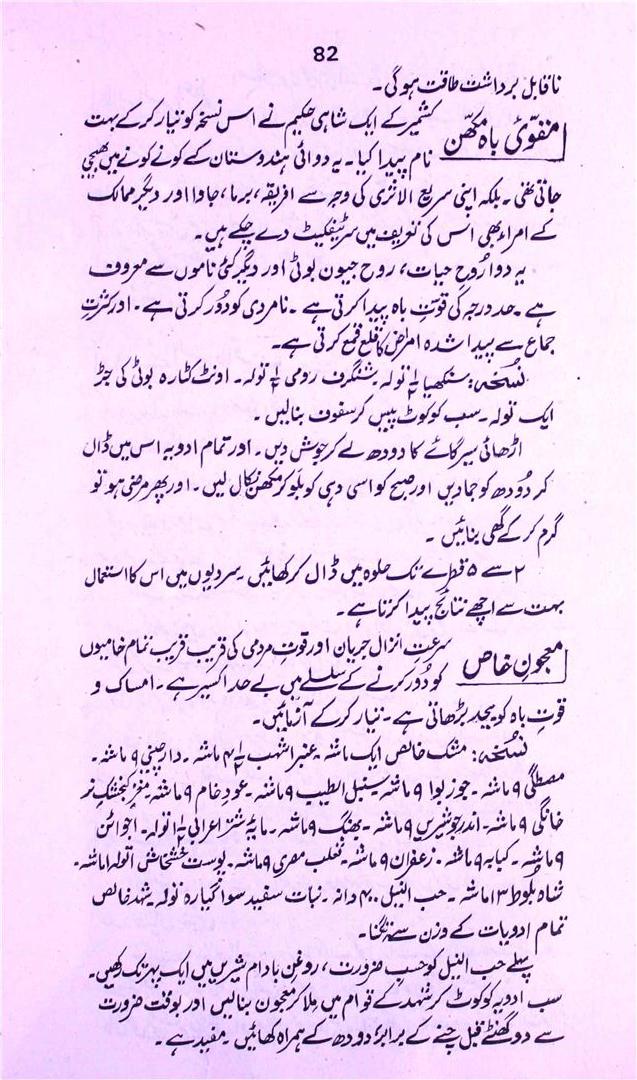 82
ناقابل برداشت طاقت ہوگی۔
مقوّیٔ باہ مکھّن
کشمیر کے ایک شاہی حکیم نے اس نسخہ کو تیار کر کے بہت
نام پیدا کیا۔ یہ دوائی ہندوستان کے کونے کونے میں بھیجی
جاتی تھی۔ بلکہ اپنی سریع الاثری کی وجہ سے افریقہ، برما، جاوا اور دیگر ممالک
کے امراء بھی اس کی تعریف میں سرٹیفکیٹ دے چکے ہیں۔
یہ دوا رُوحِ حیات، روح جیون بوٹی اور دیگر کئی ناموں سے معروف
ہے۔ حد درجہ کی قوتِ باہ پیدا کرتی ہے۔ نامردی کو دُور کرتی ہے۔ اور کثرتِ
جماع سے پیدا شدہ امراض کا قلع قمع کرتی ہے۔
نُسخہ: سنکھیا ½ تولہ شنگرف رومی ½ تولہ۔ اونٹ کٹارہ بوٹی کی جڑ
ایک تولہ۔ سب کو کوٹ پیس کر سفوف بنالیں۔
اڑھائی سیر گائے کا دودھ لے کر جوش دیں۔ اور تمام ادویہ اس میں ڈال
کر دُودھ کو جمادیں اور صبح کو اسی دہی کو بلو کر مکھن نکال لیں۔ اور پھر مرضی ہو تو
گرم کر کے گھی بنائیں۔
۲ سے ۵ قطرے تک حلوہ میں ڈال کر کھائیں۔ سردیوں میں اس کا استعمال
بہت سے اچھے نتائج پیدا کرتا ہے۔
معجونِ خاص
سرعتِ انزال جریان اور قوتِ مردمی کی قریب قریب تمام خامیوں
کو دُور کرنے کے سلسلے میں بے حد اکسیر ہے۔ امساک و
قوتِ باہ کو بیحد بڑھاتی ہے۔ تیار کر کے آزمائیں۔
نُسخہ: مشک خالص ایک ماشہ۔ عنبر اشہب ۴½ ماشہ۔ دارچینی ۹ ماشہ۔
مصطگی ۹ ماشہ۔ جوزبوا ۹ ماشہ۔ سنبل الطیب ۹ ماشہ۔ عود خام ۹ ماشہ۔ مغز کنجشک نر
خانگی ۹ ماشہ۔ اندرجو شیریں ۹ ماشہ۔ بھنگ ۹ ماشہ۔ مایہ شتر اعرابی تولہ۔ اجوائن
۹ ماشہ۔ کبابہ ۹ ماشہ۔ زعفران ۹ ماشہ۔ ثعلب مصری ۹ ماشہ۔ پوست خشخاش
شاہ بلوط ۱۳ ماشہ۔ حب النیل دانہ۔ نبات سفید سوا گیارہ تولہ۔ شہد خالص
تمام ادویات کے وزن سے تگنا۔
پہلے حب النیل کو حسبِ ضرورت، روغن بادام شیریں میں ایک پہر تک رکھیں۔
سب ادویہ کو کوٹ کر شہد کے قوام میں ملا کر معجون بنالیں اور بوقت ضرورت
سے دو گھنٹے قبل چنے کے برابر دودھ کے ہمراہ کھائیں۔ مفید ہے۔